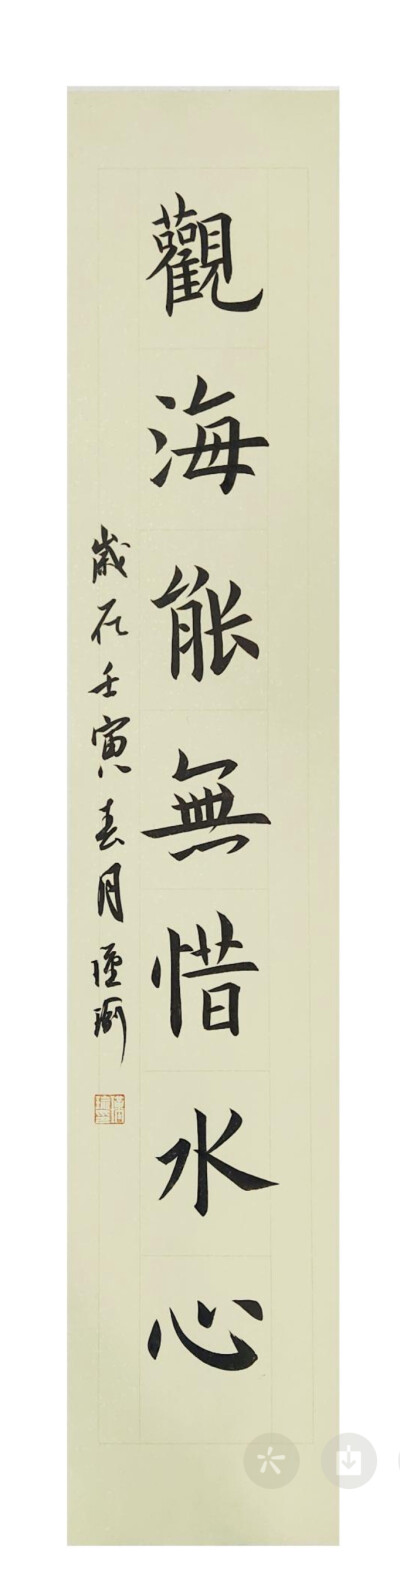 觀海能無惜水心
歲在壬寅春月